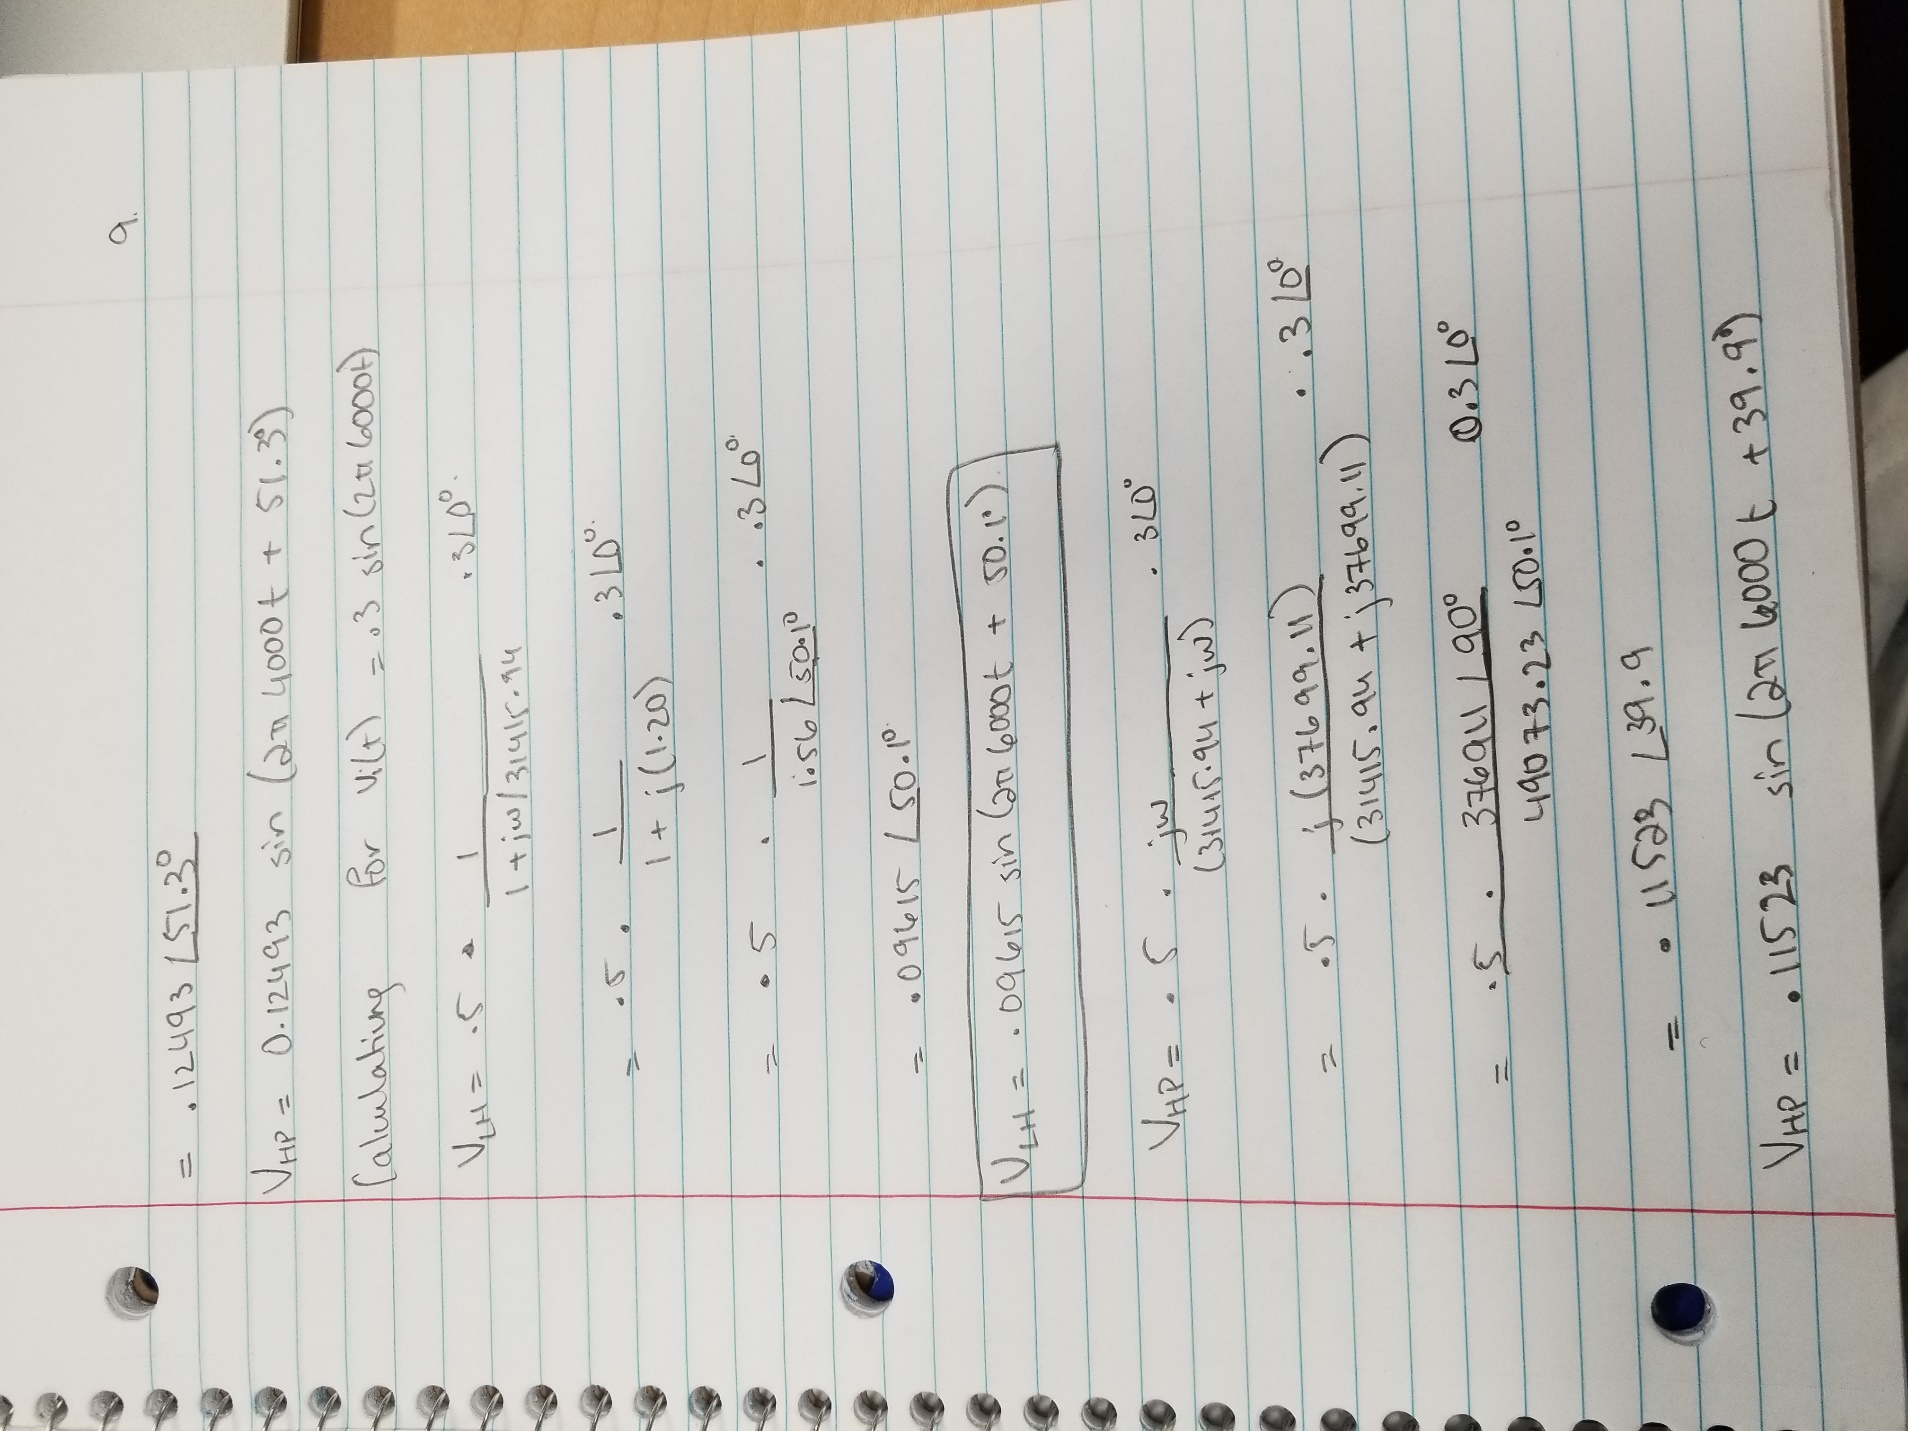 9.
= .12493 ∠51.3°
V_HP = 0.12493 sin (2π 4000t + 51.3°)
Calculating for Vi(t) = .3 sin(2π 6000t)
V_LH = .5 • 1 / (1 + jω/31415.94) .3∠0°.
= .5 . 1 / (1 + j(1.20)) .3∠0°.
= .5 . 1 / (1.56 ∠50.1°) . .3∠0°.
= .09615 ∠50.1°
V_LH = .09615 sin (2π 6000t + 50.1°)
V_HP = .5 . jω / (31415.94 + jω) . 3∠0°
= .5 . j(37699.11) / (31415.94 + j37699.11) . .3∠0°
= .5 . 376911 ∠90° / 49073.23 ∠50.1° 0.3∠0°
= .11523 ∠39.9
V_HP = .11523 sin (2π 6000t + 39.9°)